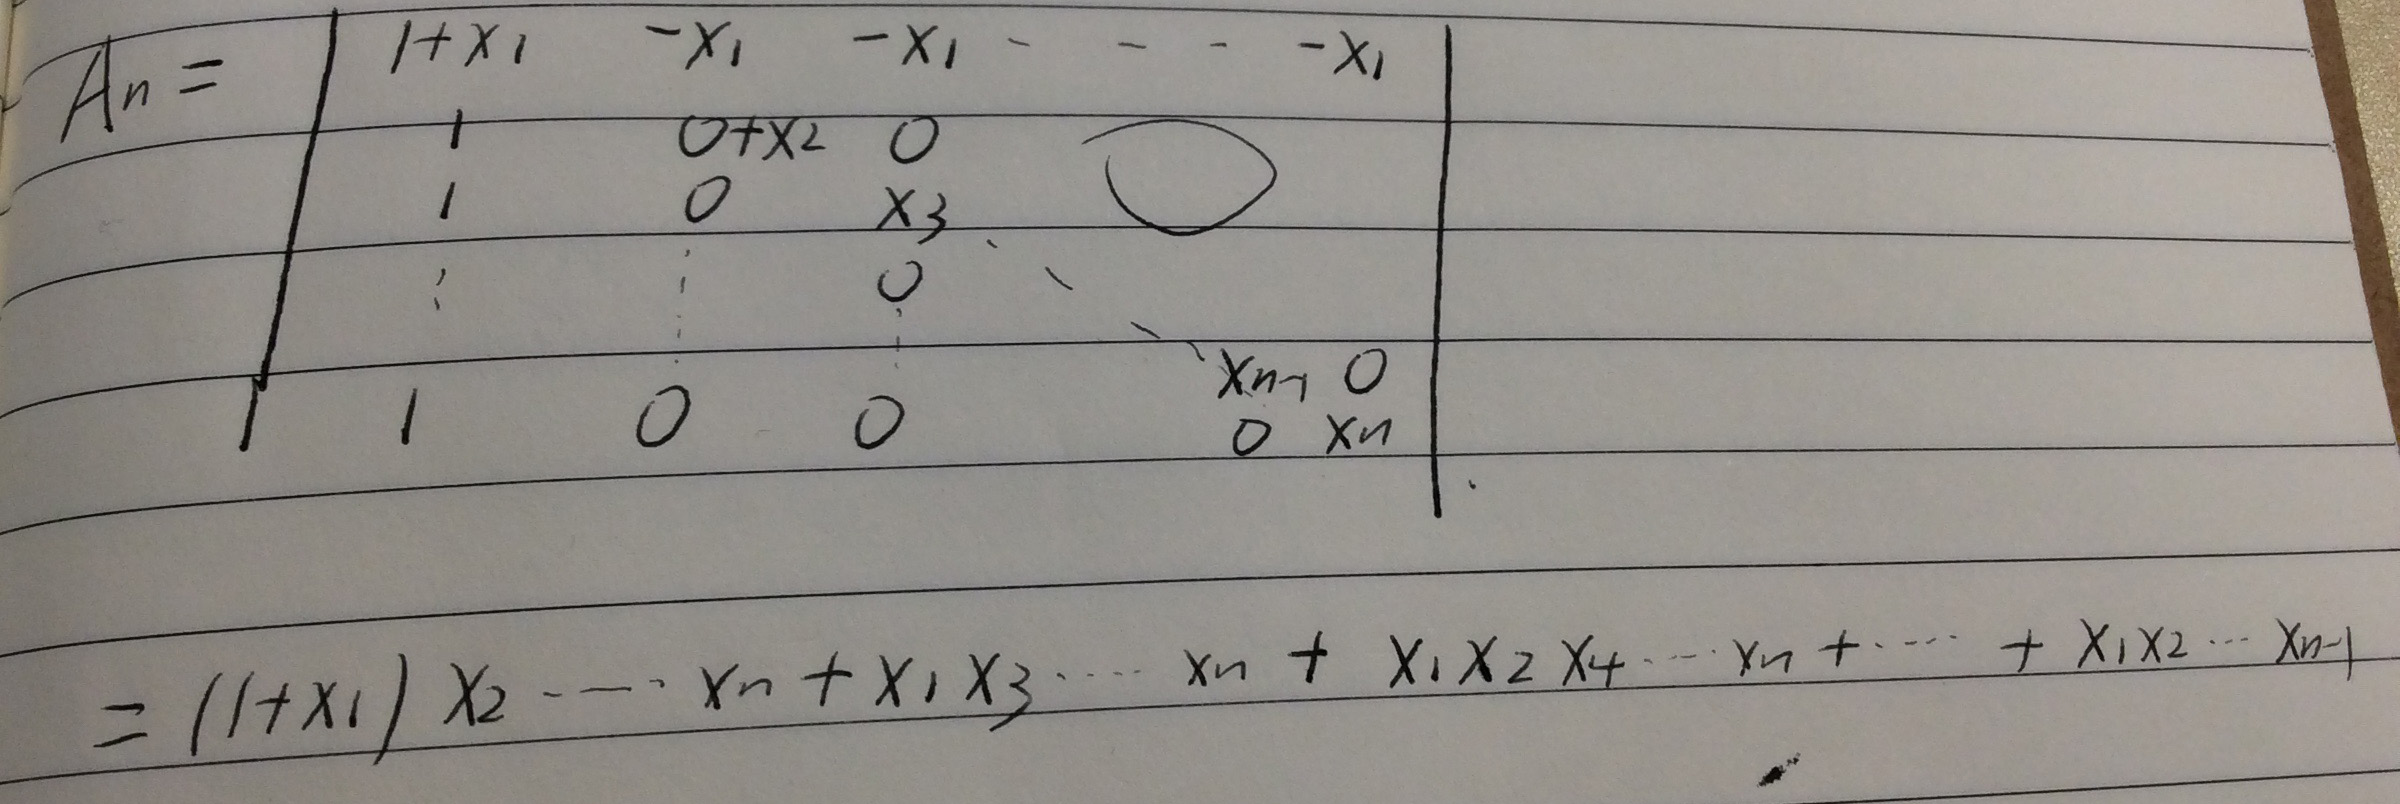 An = | 1+x1 -x1 -x1 - - - -x1 |
1 0+x2 0 0
1 0 x3
⋮ ⋮ 0 ⋱
xn-1 0
1 1 0 0 0 xn
= (1+x1) x2 ---- xn + x1 x3 ···· xn + x1 x2 x4 ···· xn + ···· + x1 x2 ··· xn-1